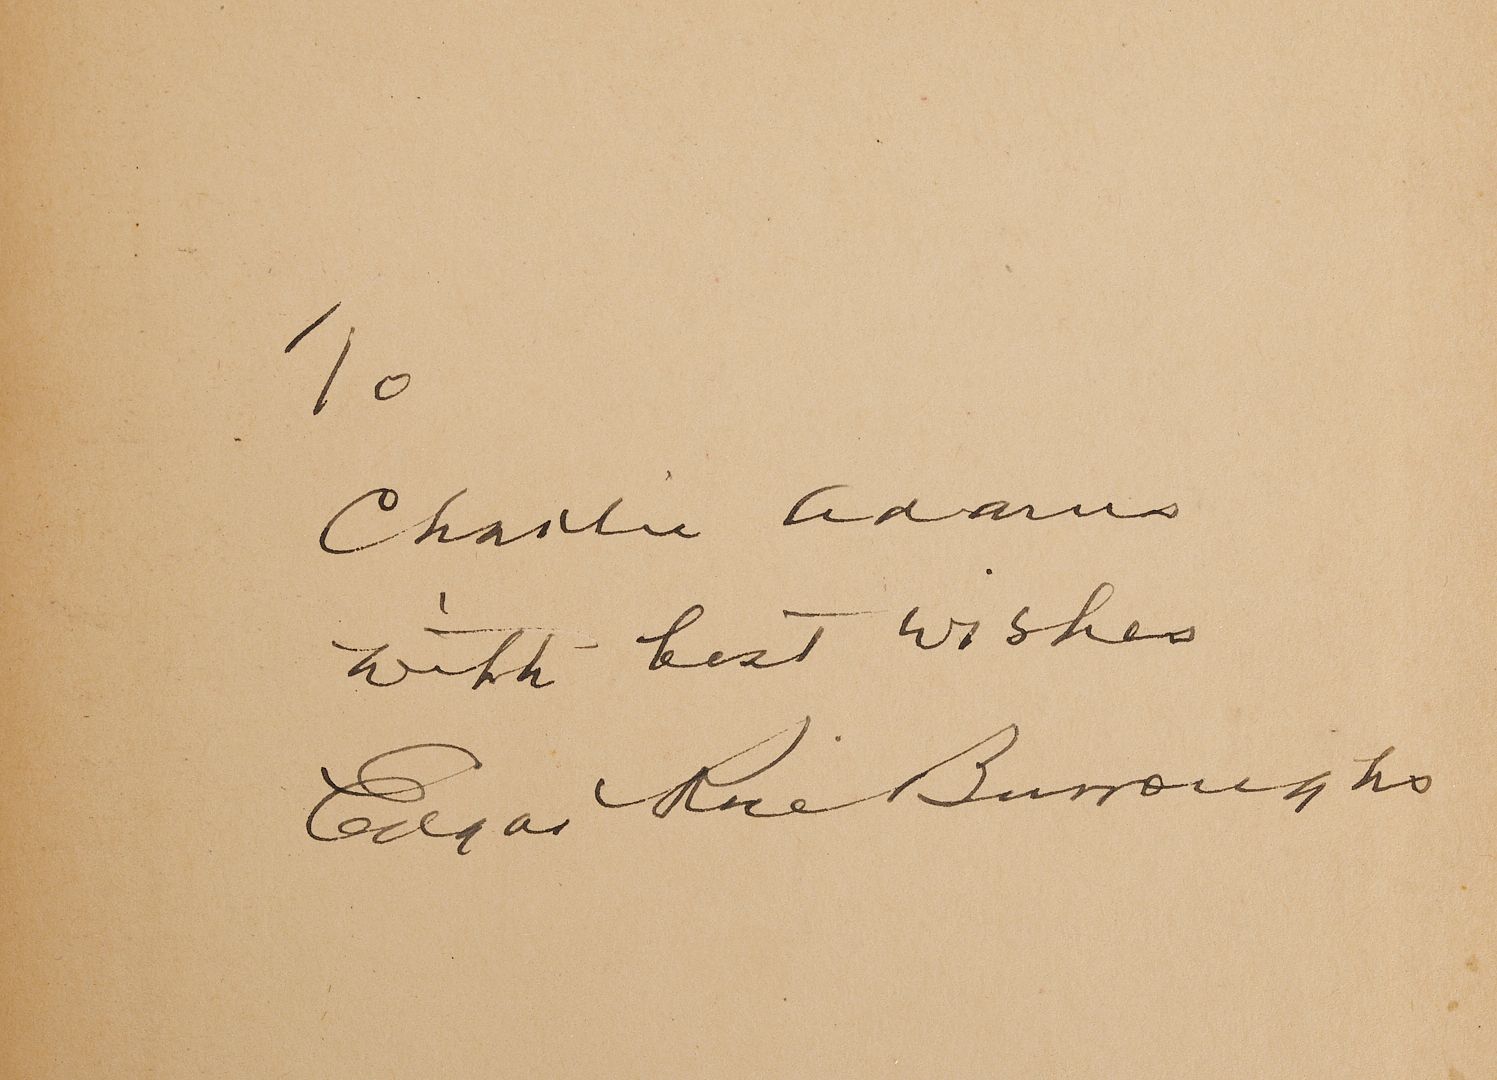 To
Charlie Adams
with best wishes
Edgar Rice Burroughs